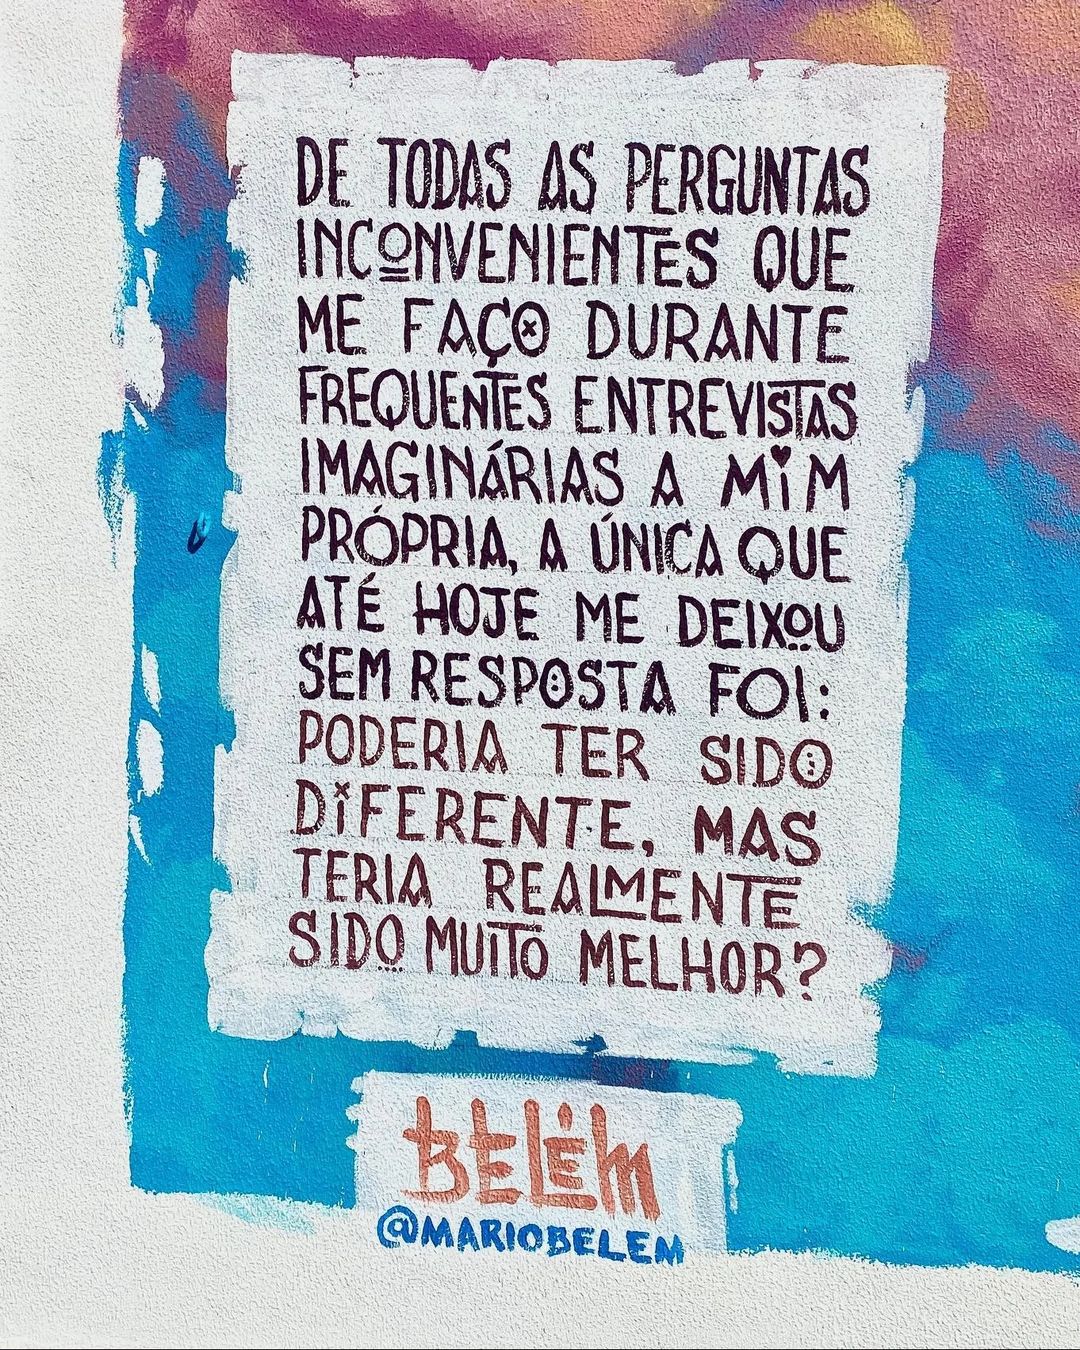 DE TODAS AS PERGUNTAS
INCONVENIENTES QUE
ME FAÇO DURANTE
FREQUENTES ENTREVISTAS
IMAGINÁRIAS A MIM
PRÓPRIA, A ÚNICA QUE
ATÉ HOJE ME DEIXOU
SEM RESPOSTA FOI:
PODERIA TER SIDO
DIFERENTE, MAS
TERIA REALMENTE
SIDO MUITO MELHOR?
BELÉM
@MARIOBELEM